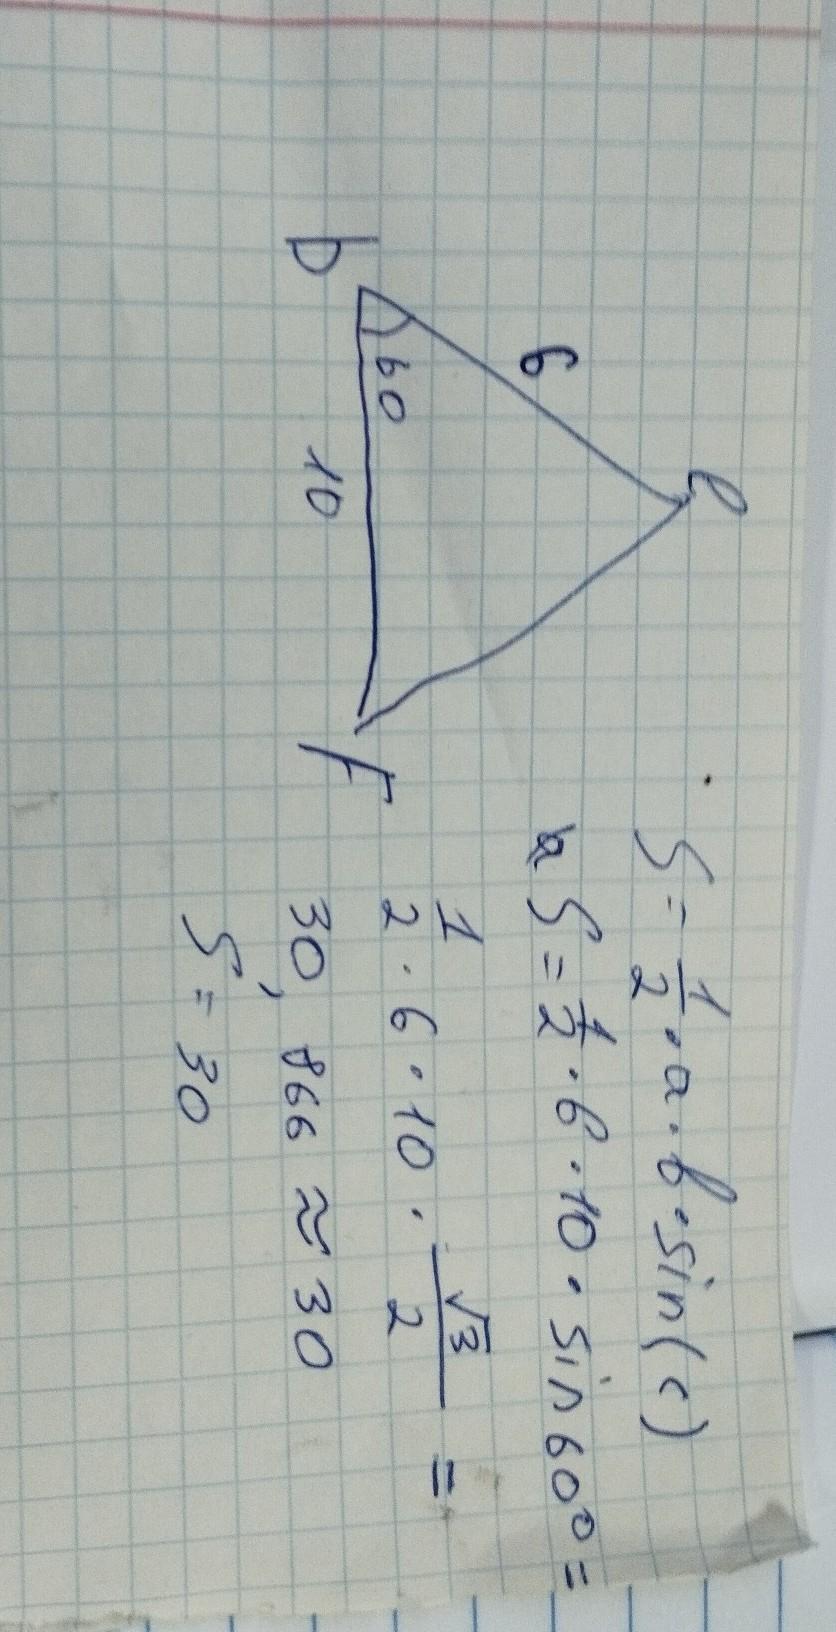 e
6
60
D
10
F
S = 1/2 · a · b · sin(c)
S = 1/2 · 6 · 10 · sin 60° =
1/2 · 6 · 10 · √3/2 =
30,866 ≈ 30
S = 30